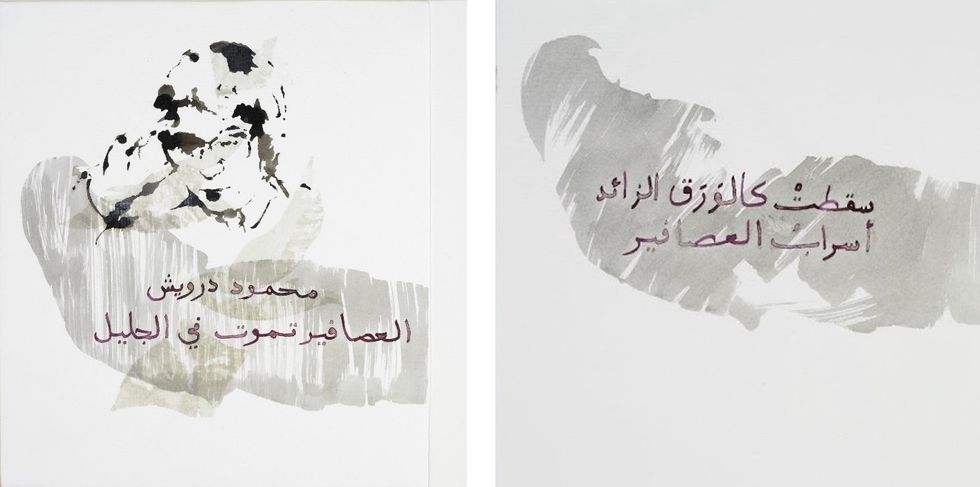 محمود درويش
العصافير تموت في الجليل
سقطتْ كالوَرَق الزائد
أسرابُ العصافير